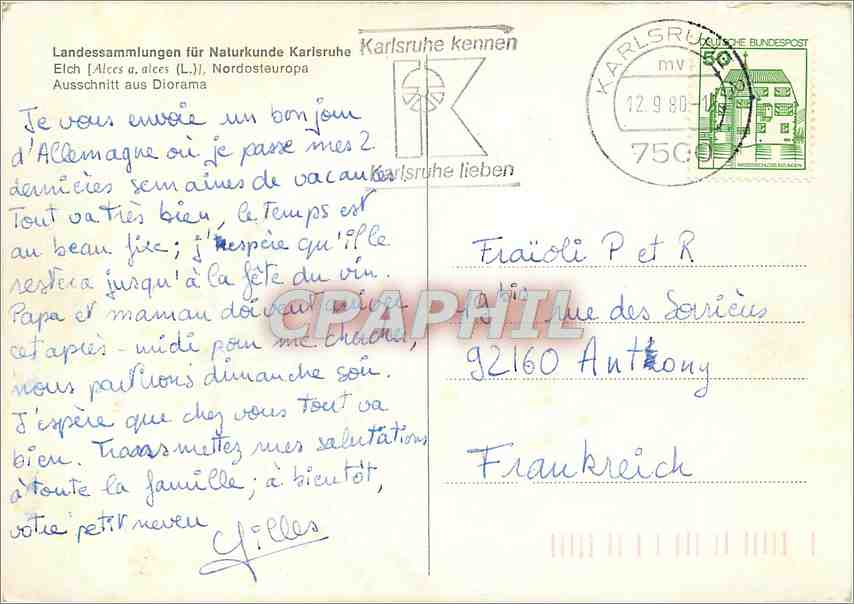 Landessammlungen für Naturkunde Karlsruhe
Elch [Alces a. alces (L.)], Nordosteuropa
Ausschnitt aus Diorama
Karlsruhe kennen
Karlsruhe lieben
KARLSRUHE
mv
12.9.80-1
7500
DEUTSCHE BUNDESPOST
50
WASSERSCHLOSS INZLINGEN
Je vous envoie un bonjour
d'Allemagne où je passe mes 2
dernières semaines de vacances
Tout va très bien, le temps est
au beau fixe ; j'espère qu'il le
restera jusqu'à la fête du vin.
Papa et maman doivent arriver
cet après-midi pour me chercher,
nous partirons dimanche soir.
J'espère que chez vous tout va
bien. Transmettez mes salutations
à toute la famille ; à bientôt,
votre petit neveu
Gilles
Fraïoli P et R
19 bis rue des Sorrières
92160 Anthony
Frankreich
CPAPHIL